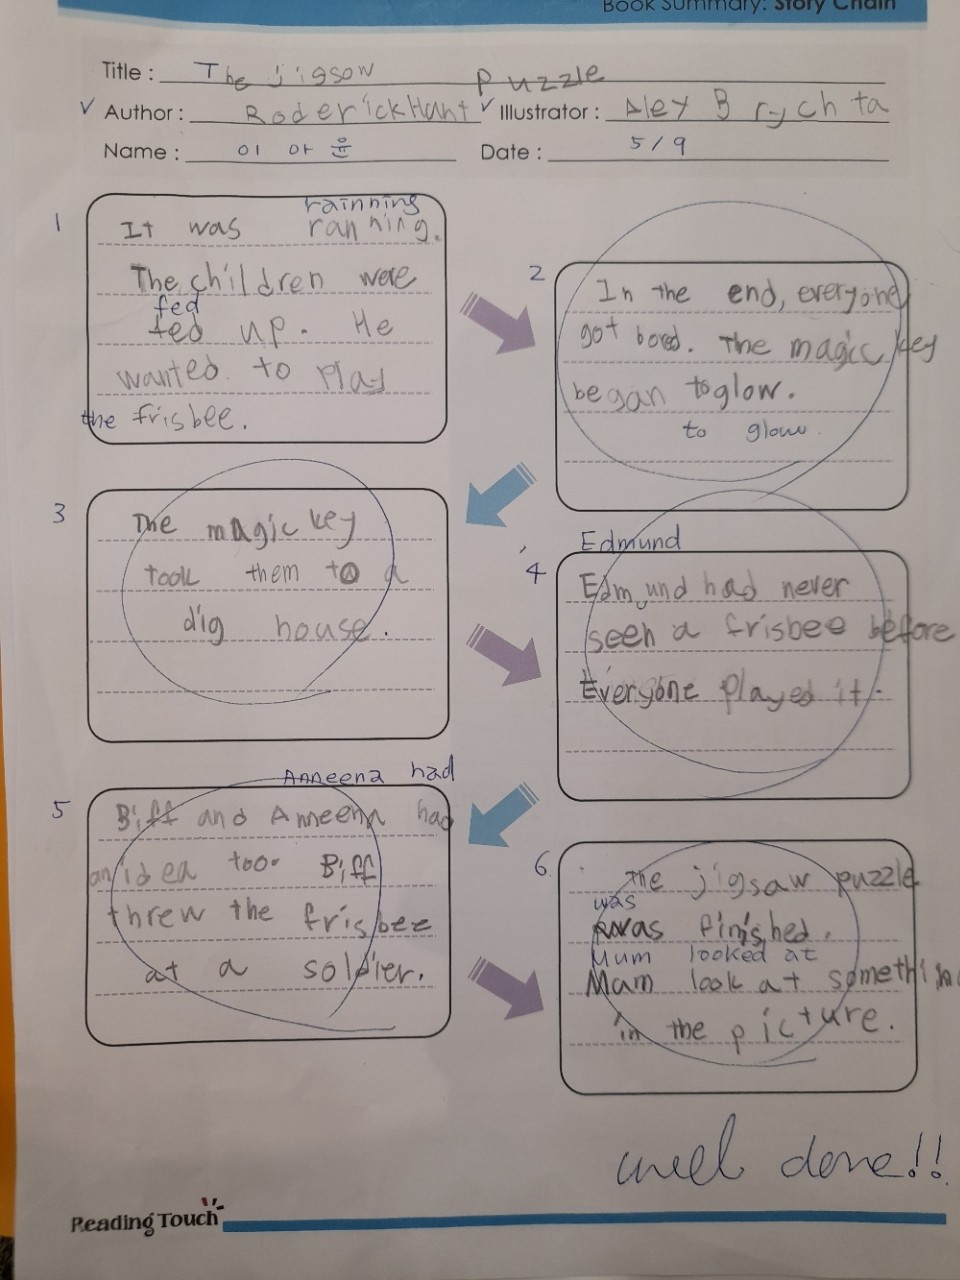 Book Summary: Story Chain
Title : The jigsow puzzle
✓ Author : Roderick Hant ✓ Illustrator : Aley Brychta
Name : 이 아 윤 Date : 5/9
1
rainning
It was ranning.
The children were
fed
fed up. He
wanted to play
the frisbee.
2
In the end, everyone
got bored. The magic key
began to glow.
to glow
3
The magic key
took them to a
dig house.
Edmund
4
Edmund had never
seen a frisbee before
Everyone played it.
Anneena had
5
Biff and Anneena had
an idea too. Biff
threw the frisbee
at a soldier.
6.
The jigsaw puzzle
was
was finished.
Mum looked at
Mam look at something
in the picture.
well done!!
Reading Touch